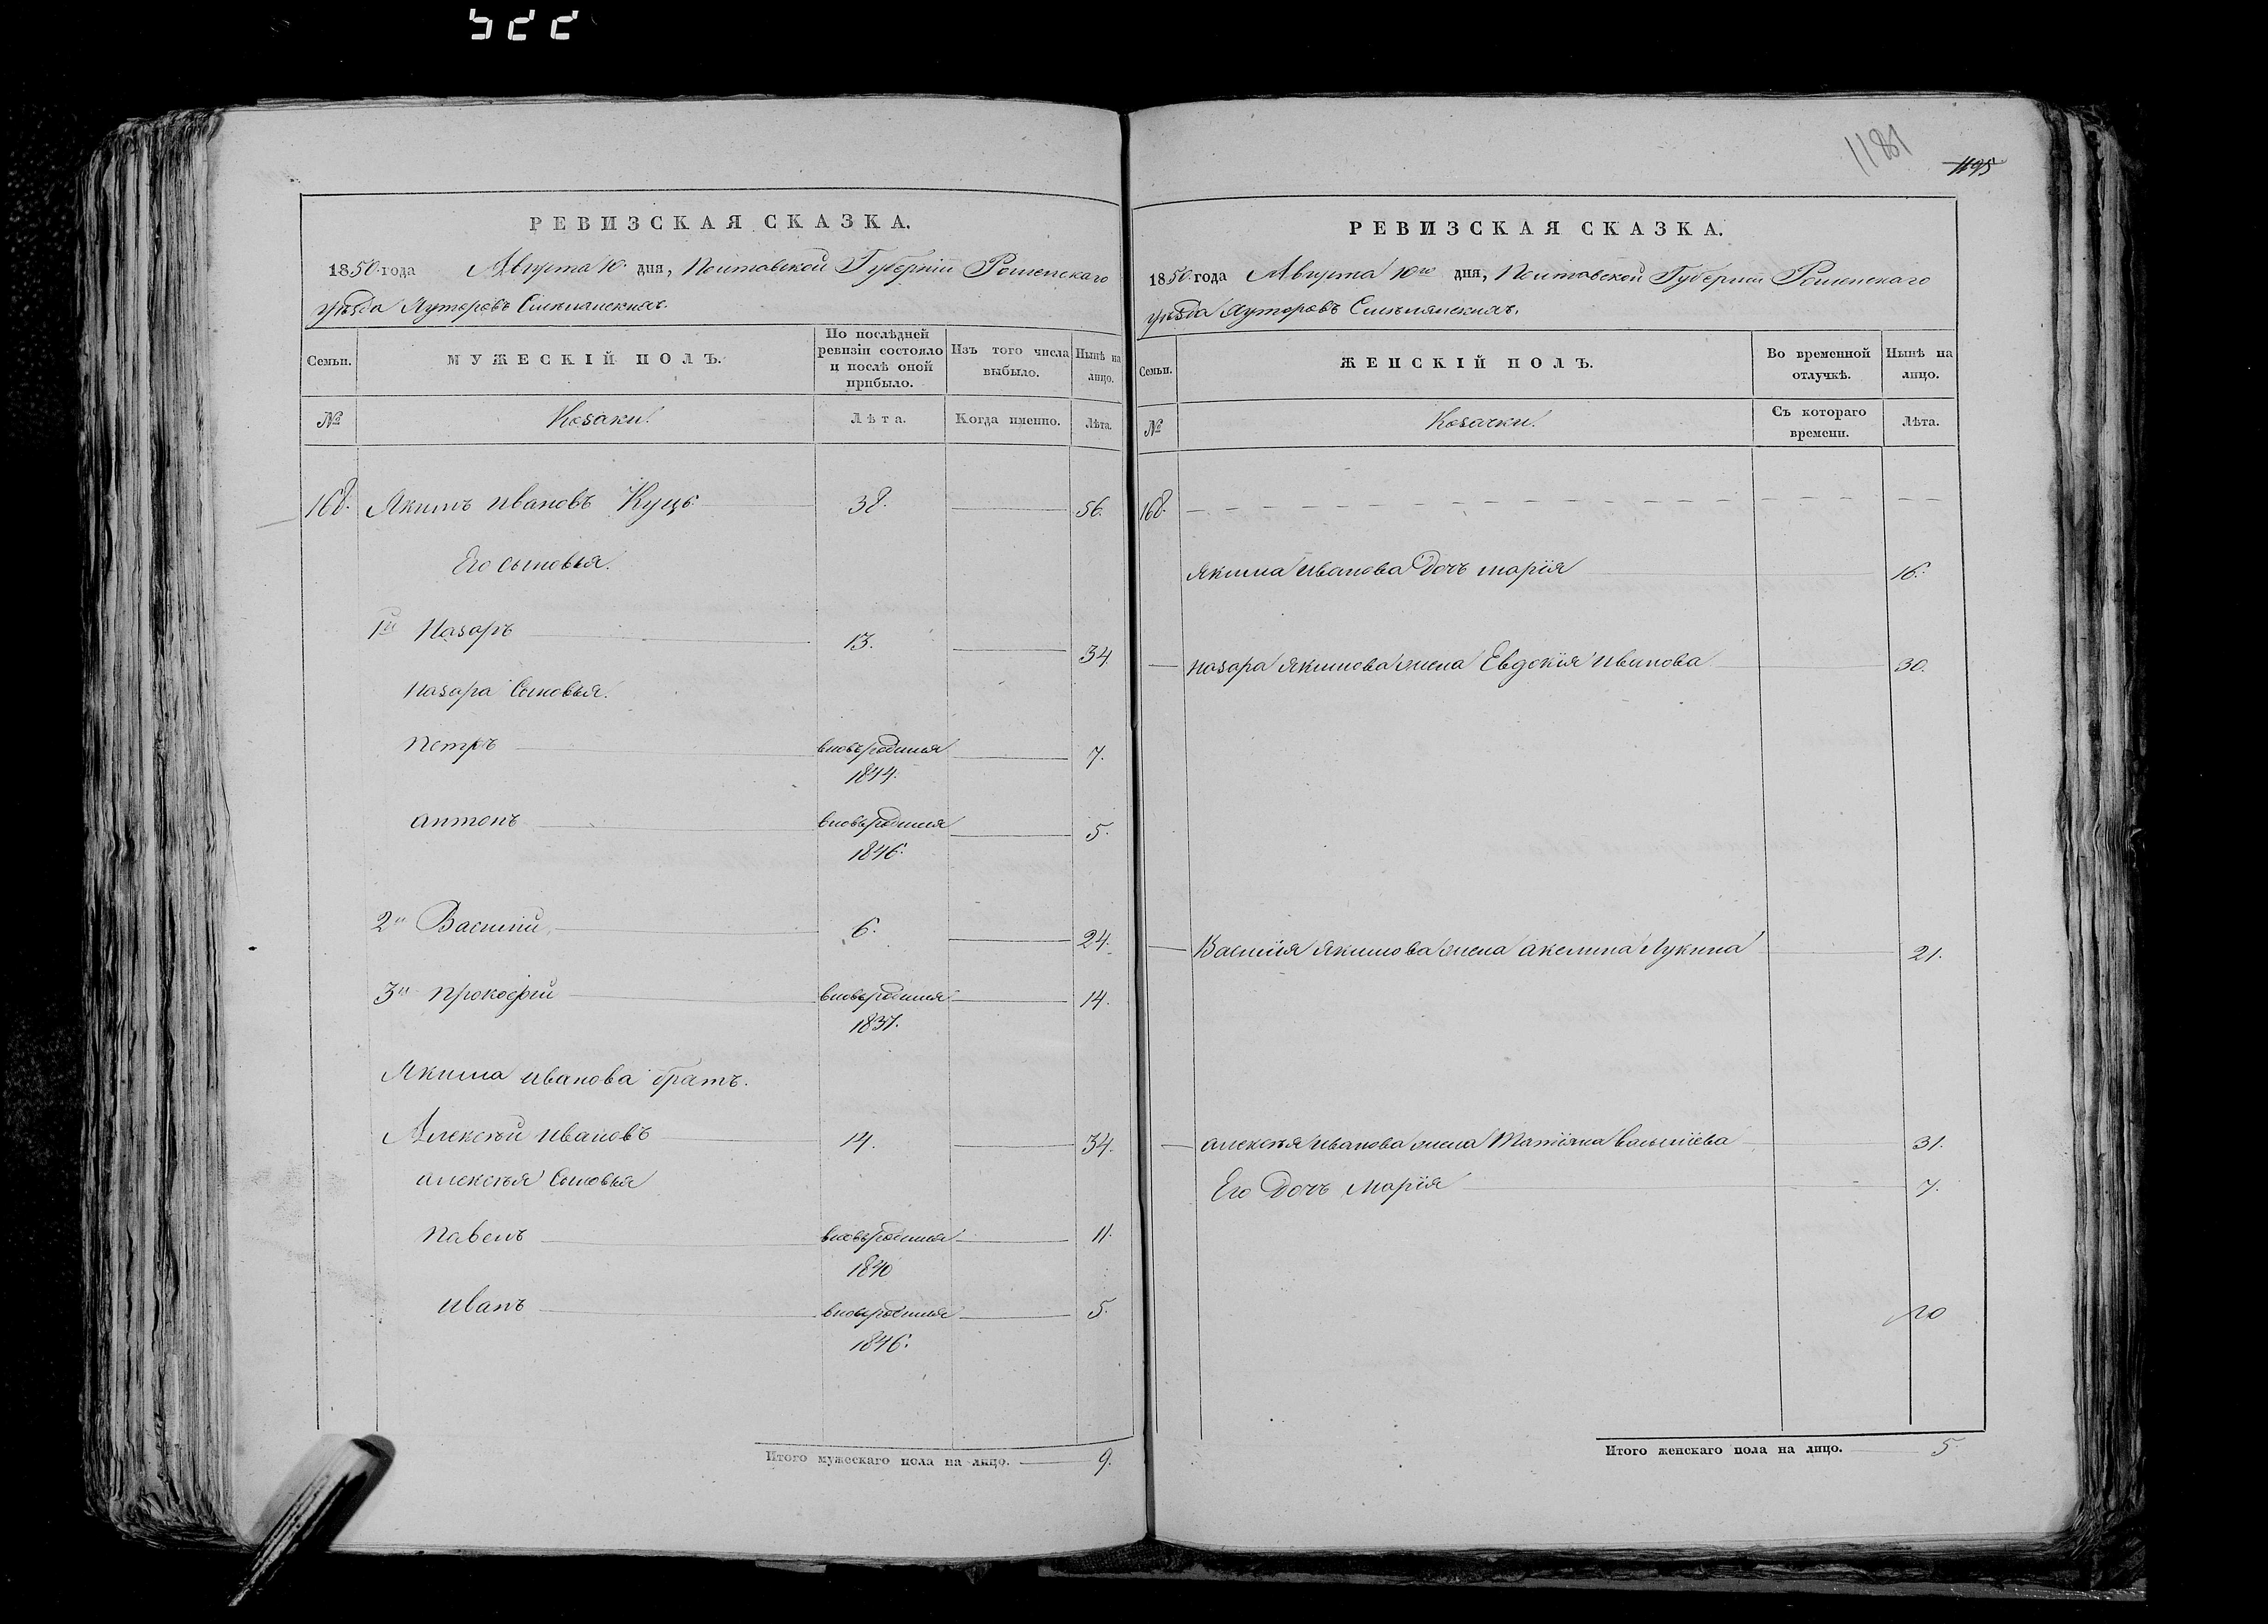 1181
1195
РЕВИЗСКАЯ СКАЗКА.
1850 года Августа 10 дня, Полтавской Губерніи Роменскаго
уѣзда Хуторовъ Смѣлянскихъ.
Семьи.
МУЖЕСКІЙ ПОЛЪ.
По послѣдней ревизіи состояло и послѣ оной прибыло.
Изъ того числа выбыло.
Нынѣ на лицо.
№
Козаки.
Лѣта.
Когда именно.
Лѣта.
168. Якимъ Ивановъ Куцъ 38. 56.
Его сыновья.
1й Назаръ 13. 34.
Назара Сыновья.
Петръ вновьродился 7.
1844.
Антонъ вновьродился 5.
1846.
2й Василій 6. 24.
3й Прокофій вновьродился 14.
1837.
Якима Иванова братъ.
Алексѣй Ивановъ 14. 34.
Алексѣя Сыновья
Павелъ вновьродился 11.
1840
Иванъ вновьродился 5.
1846.
Итого мужескаго пола на лицо. 9.
РЕВИЗСКАЯ СКАЗКА.
1850 года Августа 10го дня, Полтавской Губерніи Роменскаго
уѣзда Хуторовъ Смѣлянскихъ.
Семьи.
ЖЕНСКІЙ ПОЛЪ.
Во временной отлучкѣ.
Нынѣ на лицо.
№
Козачки.
Съ котораго времени.
Лѣта.
168.
Якима Иванова дочь Марія 16.
Назара Якимова жена Евдокія Иванова 30.
Василія Якимова жена Акелина Лукина 21.
Алексѣя Иванова жена Татіяна Васьиліева 31.
Его дочь Марія 7.
Итого женскаго пола на лицо. 5.